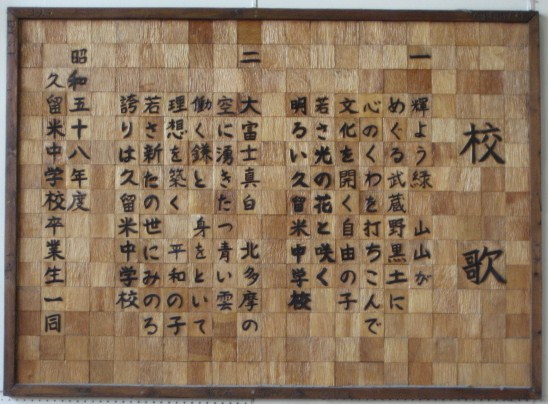 校歌
一
輝よう緑　山山が
めぐる武蔵野黒土に
心のくわを打ちこんで
文化を開く自由の子
若さ光の花と咲く
明るい久留米中学校
二
大富士真白　北多摩の
空に湧きたつ青い雲
働く鎌と　身をといて
理想を築く　平和の子
若さ新たの世にみのる
誇りは久留米中学校
昭和五十八年度
久留米中学校卒業生一同